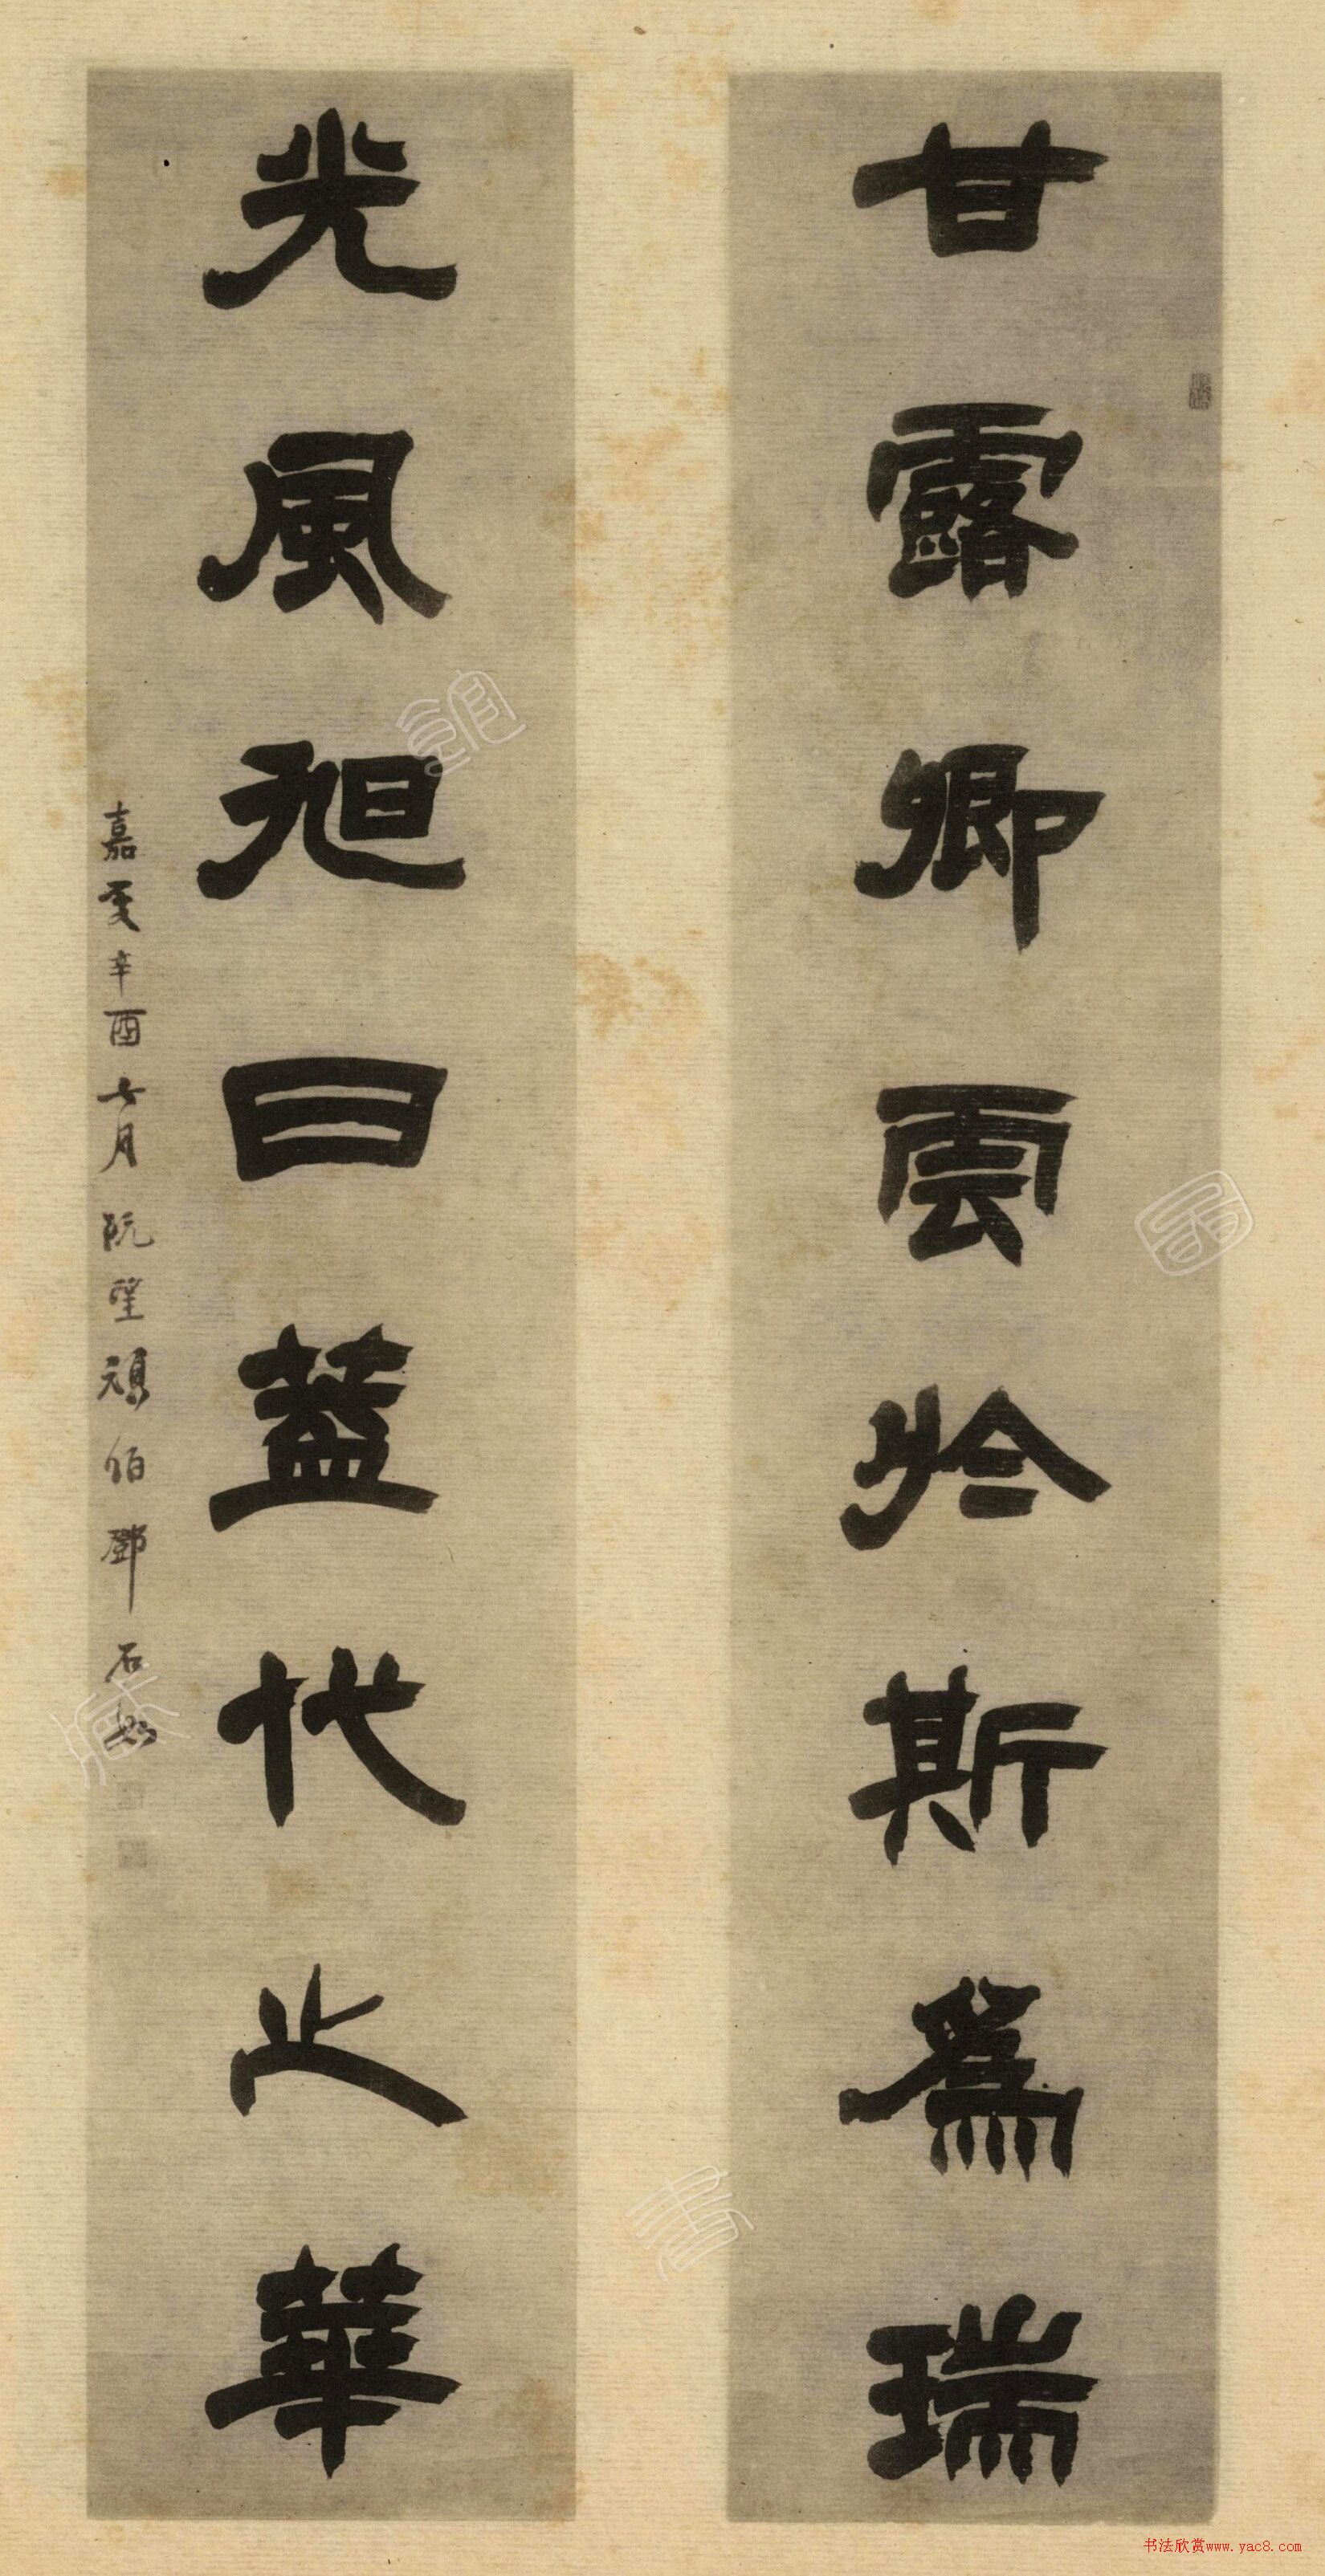 甘露卿雲於斯爲瑞
光風旭日蓋代之華
嘉慶辛酉七月阮望頑伯鄧石如
书法欣赏www.yac8.com